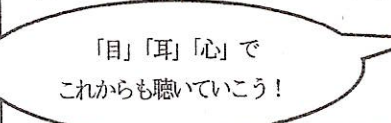 「目」「耳」「心」で
これからも聴いていこう！